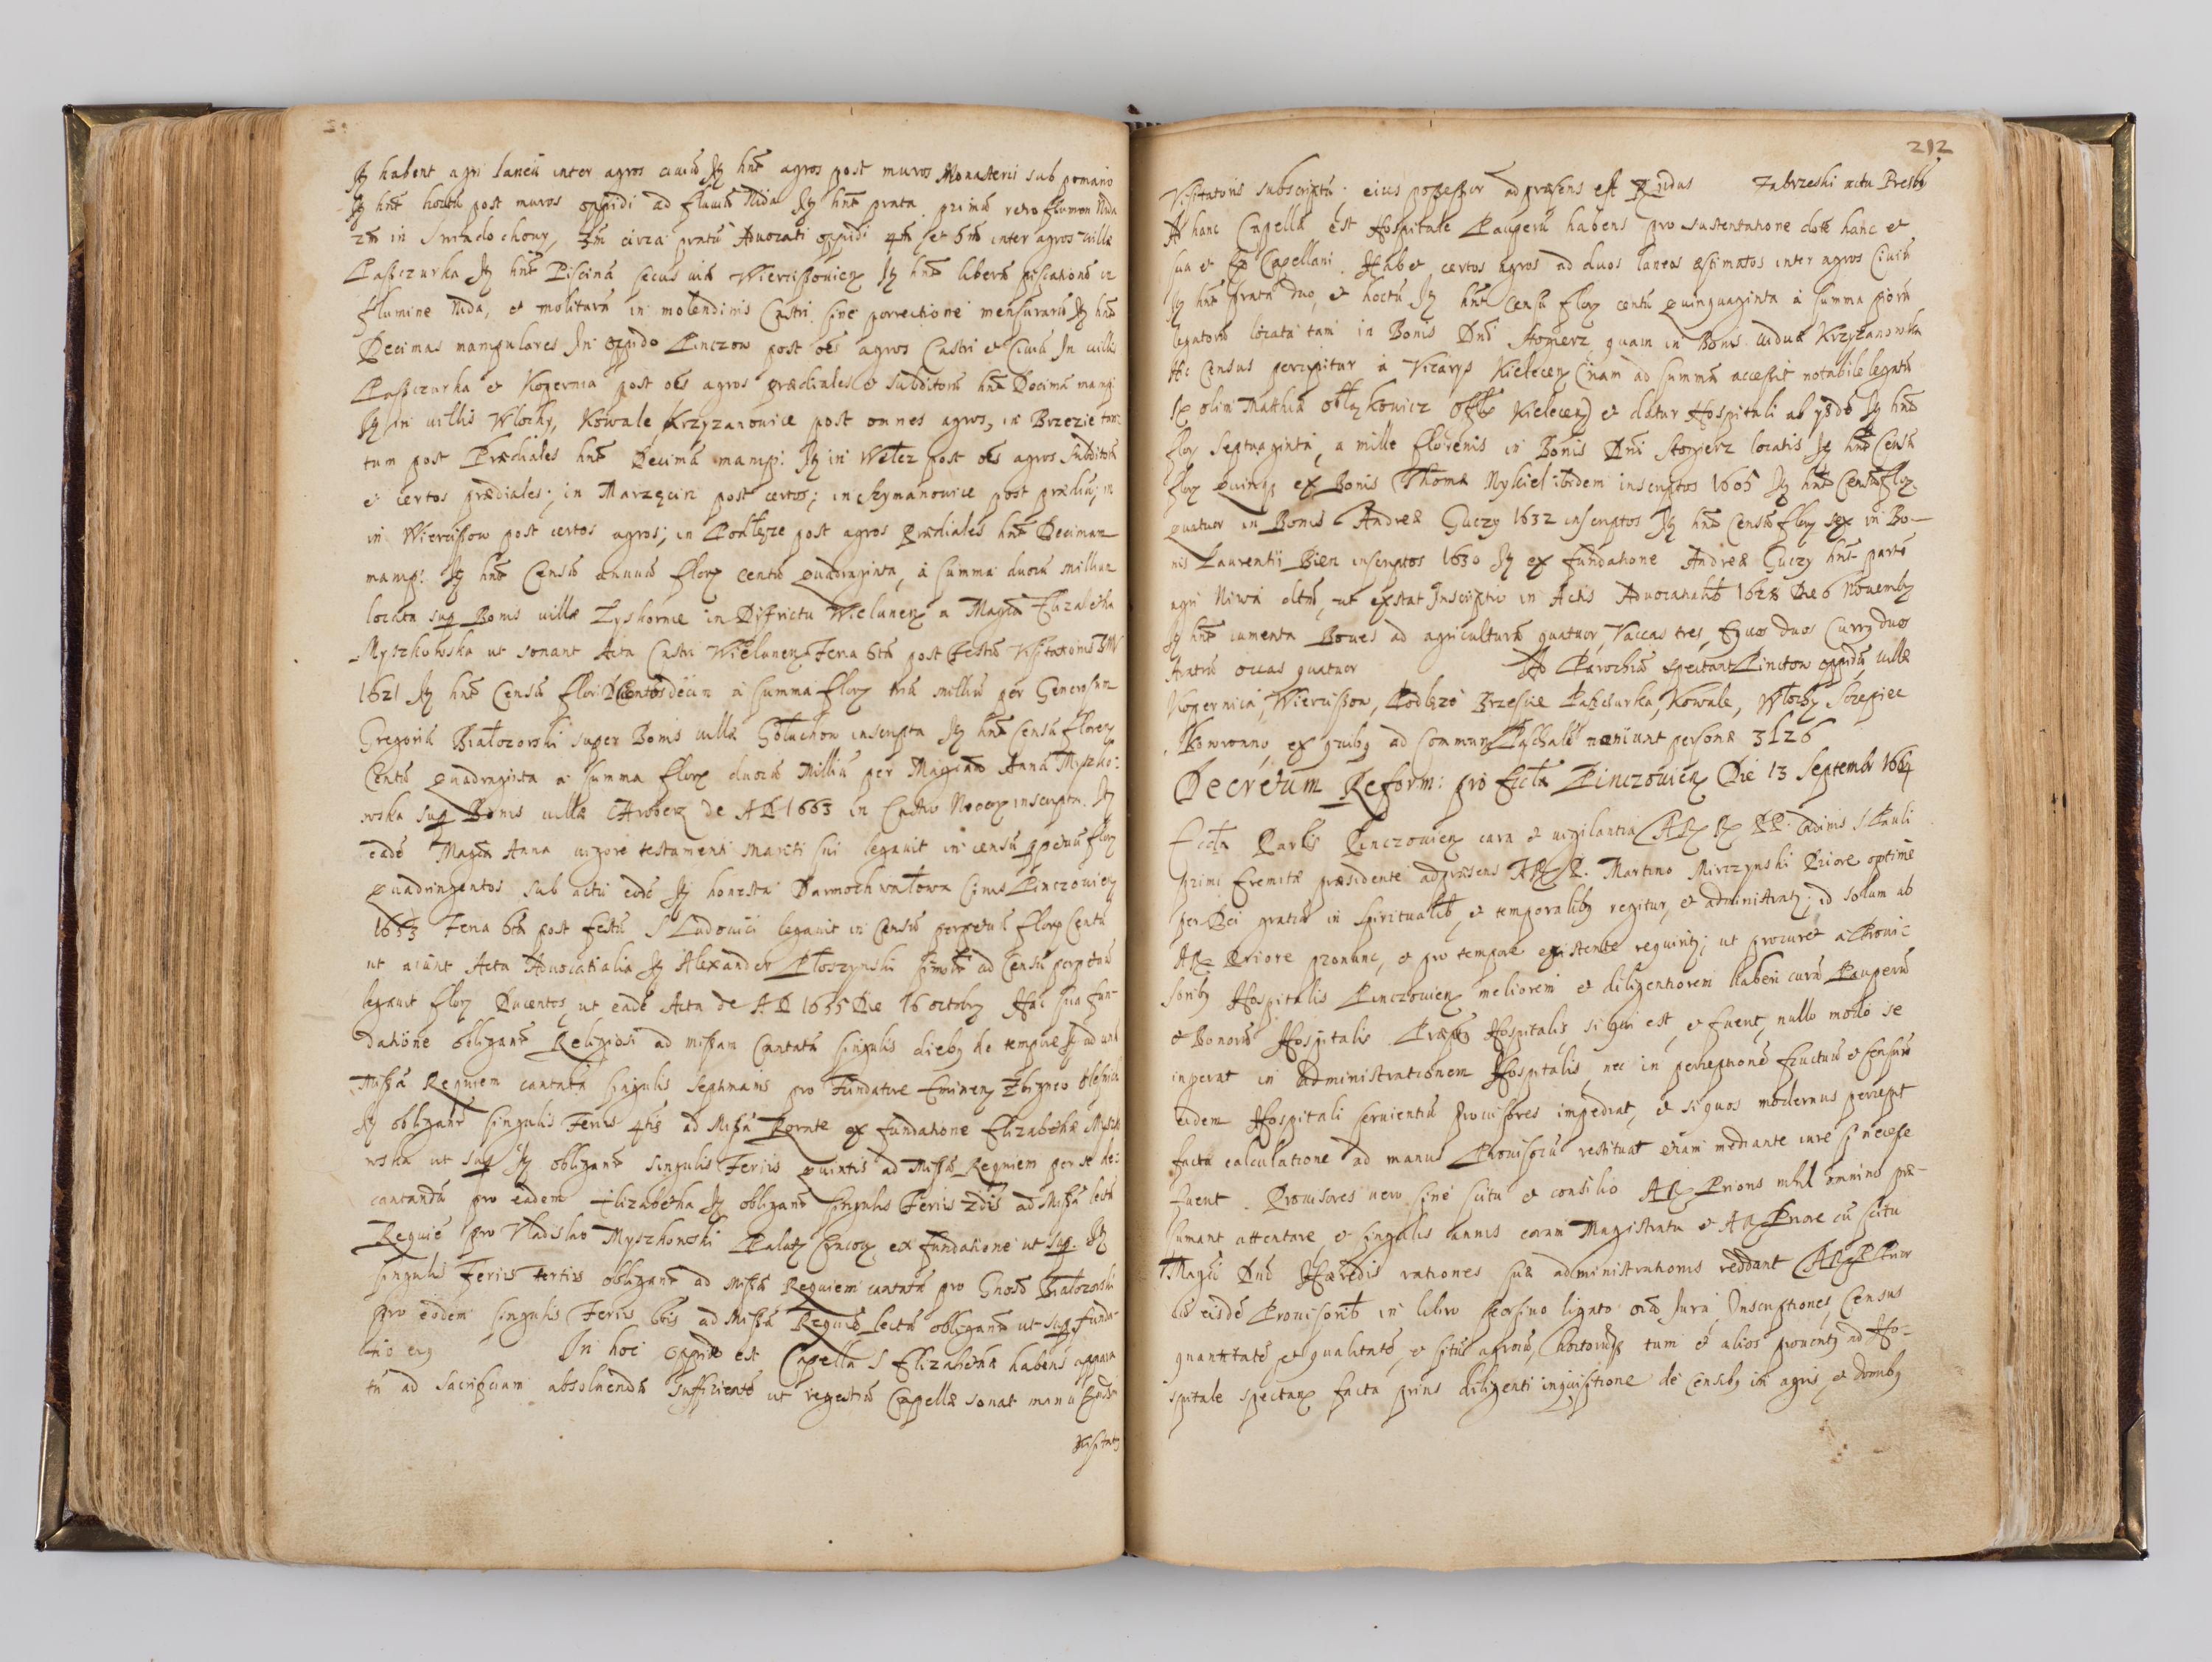 Itz habent agri laneũ inter agros ciuiũ Itz hñt agros post muros Monasterii sub pomario
Itz hñt hortũ post muros oppidi ad fluuiũ Nida Itz hñt prata primũ retro flumen Nida
2m in Smiadochowy, 3m circa pratũ Aduocati oppidi 4m et 5m inter agros villæ
Paszczurka Itz hñt Piscinã secus viã Wierciszouien Itz hñt liberã piscationẽ in
flumine Nida, et molituram in molendinis Castri sine porrectione mensurarũ Itz hñt
Decimas manipulares In oppido Pinczow post oẽs agros Castri et Ciuiũ In villis
Paszczurka et Kopernia post oẽs agros prædiales et Subditorũ hñt Decimã manip:
Itz in villis Wlochy, Kowale Krzyzanowice post omnes agros, in Brzezie tan-
tum post Prædiales hñt Decimã manip: Itz in Welez post oẽs agros Subditorũ
et certos prædiales; in Marzęcin post certos; in Szymanowice post prædiũ;
in Wierciszow post certos agros; in Podlęze post agros Prædiales hñt Decimam
manip: Itz hñt Censũ annuũ flor Centũ Quadraginta, à summa duorũ milliũ
locata sup Bonis villæ Łyskornie in Districtu Wielunen a Magca Elizabetha
Myszkowska ut sonant Acta Castri Wielunen Feria 6ta post Festũ Visitationis BMV
1621 Itz hñt Censũ flor Ducentos decem à summa flor triũ milliũ per Generosum
Gregoriũ Białozorski super Bonis villæ Gołuchow inscripta Itz hñt Censũ floren
Centũ Quadraginta a summa flor duorũ Milliũ per Magcam Annã Myszko:
wska sup Bonis villæ Chroberz de AD 1663 in Castro Nouocor inscripta. Itz
eadẽ Magca Anna vigore testamenti Mariti sui legauit in censũ ppetuũ flor
Quadringentos sub actu eodẽ Itz honesta Darmochwałowa Ciuis Pinczouien
1653 Feria 6ta post festũ S Ludouici legauit in Censũ perpetuũ flor Centũ
ut aiunt Acta Aduocatialia Itz Alexander Płoszynski simĩtr ad Censũ perpetuũ
legauit flor Ducentos, ut eadẽ Acta de AD 1655 Die 16 octobr Hac sua fun-
datione obligantr Religiosi ad missam Cantatã singulis dieby de tempore Itz ad unã
Missã Requiem cantatã singulis septimanis pro Fundatore Eminen Zbigneo Olesnicki
Itz obligantr singulis Feriis 4tis ad Missã Rorate ex fundatione Elizabethæ Myszko
wska ut sup Itz obligantr singulis Feriis quintis ad Missã Requiem per se de:
cantandã pro eadem Elizabetha Itz obligantr singulis Feriis 2dis ad Missã lectã
Requiẽ pro Vladislao Myszkowski Palat Cracov ex fundatione ut sup. Itz
singulis Feriis tertiis obligantr ad Missã Requiem cantatã pro Gnoso Białozorski
pro eodem singulis Feriis 6tis ad Missã Requiẽ lectã obligantr ut sup funda-
tio eius In hoc oppido est Capella S Elizabethæ habens appara
tũ ad sacrificium absoluendũ sufficientẽ ut regestrũ Capellæ sonat manu
Visitatoris
212
Visitatoris subscriptũ; eius possessor ad præsens est Zabrzeski actu Presbr
Ad hanc Capellã est Hospitale Pauperũ habens pro sustentatione dotẽ hanc et
sua et Capellani. Habet certos agros ad duos laneos æstimatos inter agros Ciuiũ
Itz hñt prata duo, et hortũ Itz hñt Censũ flor centũ quinquaginta à summa piorũ
legatorũ locata tam in Bonis Dñi Stogierz quam in Bonis viduæ Krzyzanowska
Hic Census percipitur à Vicarys Kielecen (nam ad summã accessit notabile legatũ
olim Matthiæ Obłązkowicz Kielecen) et datur Hospitali ab ysdẽ Itz hñt
flor septuaginta, a mille florenis in Bonis Dñi Stogierz locatis Itz hñt Censũ
flor quinq ex Bonis Thomæ Mykiel ibidem inscriptos 1605 Itz hñt Censũ flor
quatuor in Bonis Andreæ Guczy 1632 inscriptos Itz hñt Censũ flor sex in Bo-
nis Laurentii Bien inscriptos 1630 Itz ex fundatione Andreæ Guczy hñt partẽ
agri Niwa dictũ, ut extat Inscriptio in Actis Aduocatialib 1628 Die 6 Nouembr
Itz hñt iumenta Boues ad agriculturã quatuor, Vaccas tres, Equos duos Curry duo
Aratrũ occas quatuor Ad Parochiã spectant Pinczow oppidũ, villæ
Kopernia, Wierciszow, Podlęze Brzezie Paszczurka, Kowale, Włochy Skrzypiec
Bowronny, ex quiby ad Commun Paschalẽ veniunt personæ 3126
Decretum Reform: pro Eccla Pinczouien Die 13 Septembr 1664
Eccla Parlis Pinczouien cura et vigilantia PP. Ordinis S Pauli
primi Eremitæ præsidente ad præsens P. Martino Mirczynski Priore optime
per Dei gratiã in spiritualib, et temporaliby regitur, et administratr; id solum ab
Priore pronunc, et pro tempore existente requiritr; ut procuret a Prouis-
soriby Hospitalis Pinczouien meliorem et diligentiorem haberi curã Pauperũ
et Bonorũ Hospitalis Præptus Hospitalis si quis est, et fuerit, nullo modo se
ingerat in administrationem Hospitalis, nec in perceptionẽ fructuũ et Censuũ
eidem Hospitali seruientiũ prouisores impediat, et si quos modernus percepit
facta calculatione ad manus Prouisorũ restituat etiam mediante iure si necesse
fuerit. Prouisores vero sine scitu et consilio Prioris nihil omnino præ-
sumant attentare, et singulis annis coram Magistratu et Priore cũ scitu
Magci Dñi Hæredis rationes suæ administrationis reddant Prior
eisdẽ Prouisorib in libro seorsiuo ligato oia Jura, Inscriptiones, Census
quantitatẽ et qualitatẽ, et situs agrorũ, hortorũ, tum et alios prouenty ad Ho-
spitale spectan facta prius diligenti inquisitione de Censiby in agris, et domiby